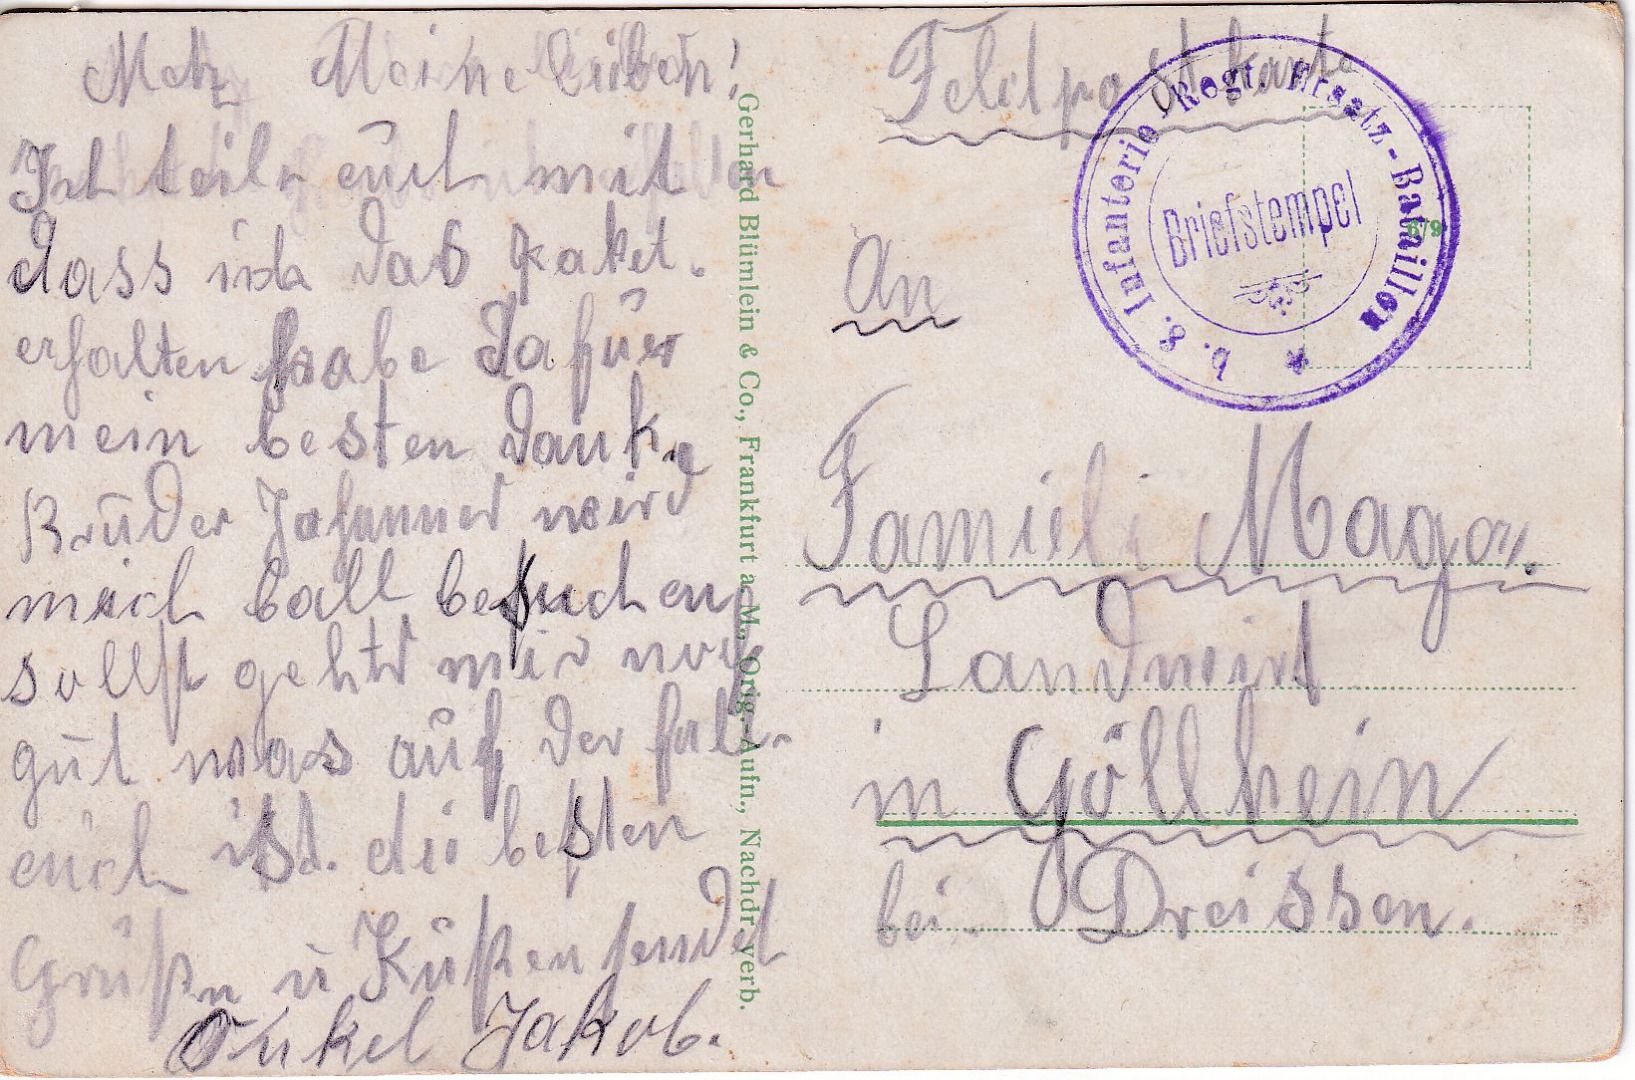 Metz Meine Lieben!
Ich teile euch mit
dass ich das Paket.
erhalten habe dafür
mein besten Dank.
Bruder Johannes wird
mich ball besuchen
sollst gehts mir noch
gut was auf der fall
euch ist. die besten
Grüße u Küßen sendet
Onkel Jakob.
Gerhard Blümlein & Co., Frankfurt a. M., Orig.-Aufn., Nachdr. verb.
Feldpostkarte
b. 8. Infanterie Regt. Ersatz-Bataillon
Briefstempel
An
Familie
Landwirt
in Göllheim
bei Dreissen.